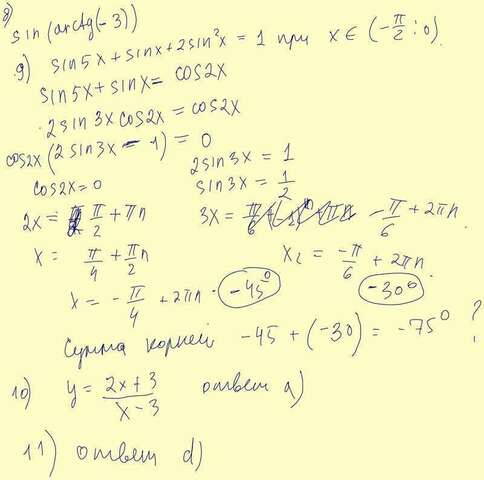 8) sin(arctg(-3)
9) sin5x + sinx + 2sin²x = 1 при x ∈ (-π/2 ; 0).
sin5x + sinx = cos2x
2sin3x cos2x = cos2x
cos2x(2sin3x - 1) = 0
cos2x = 0
2sin3x = 1
sin3x = 1/2
2x = π/2 + πn
3x = -π/6 + 2πn
x = π/4 + πn/2
x₂ = -π/6 + 2πn.
x = -π/4 + 2πn. -45°
-30°
Сумма корней -45 + (-30) = -75° ?
10) y = (2x + 3)/(x - 3) ответ a)
11) ответ d)